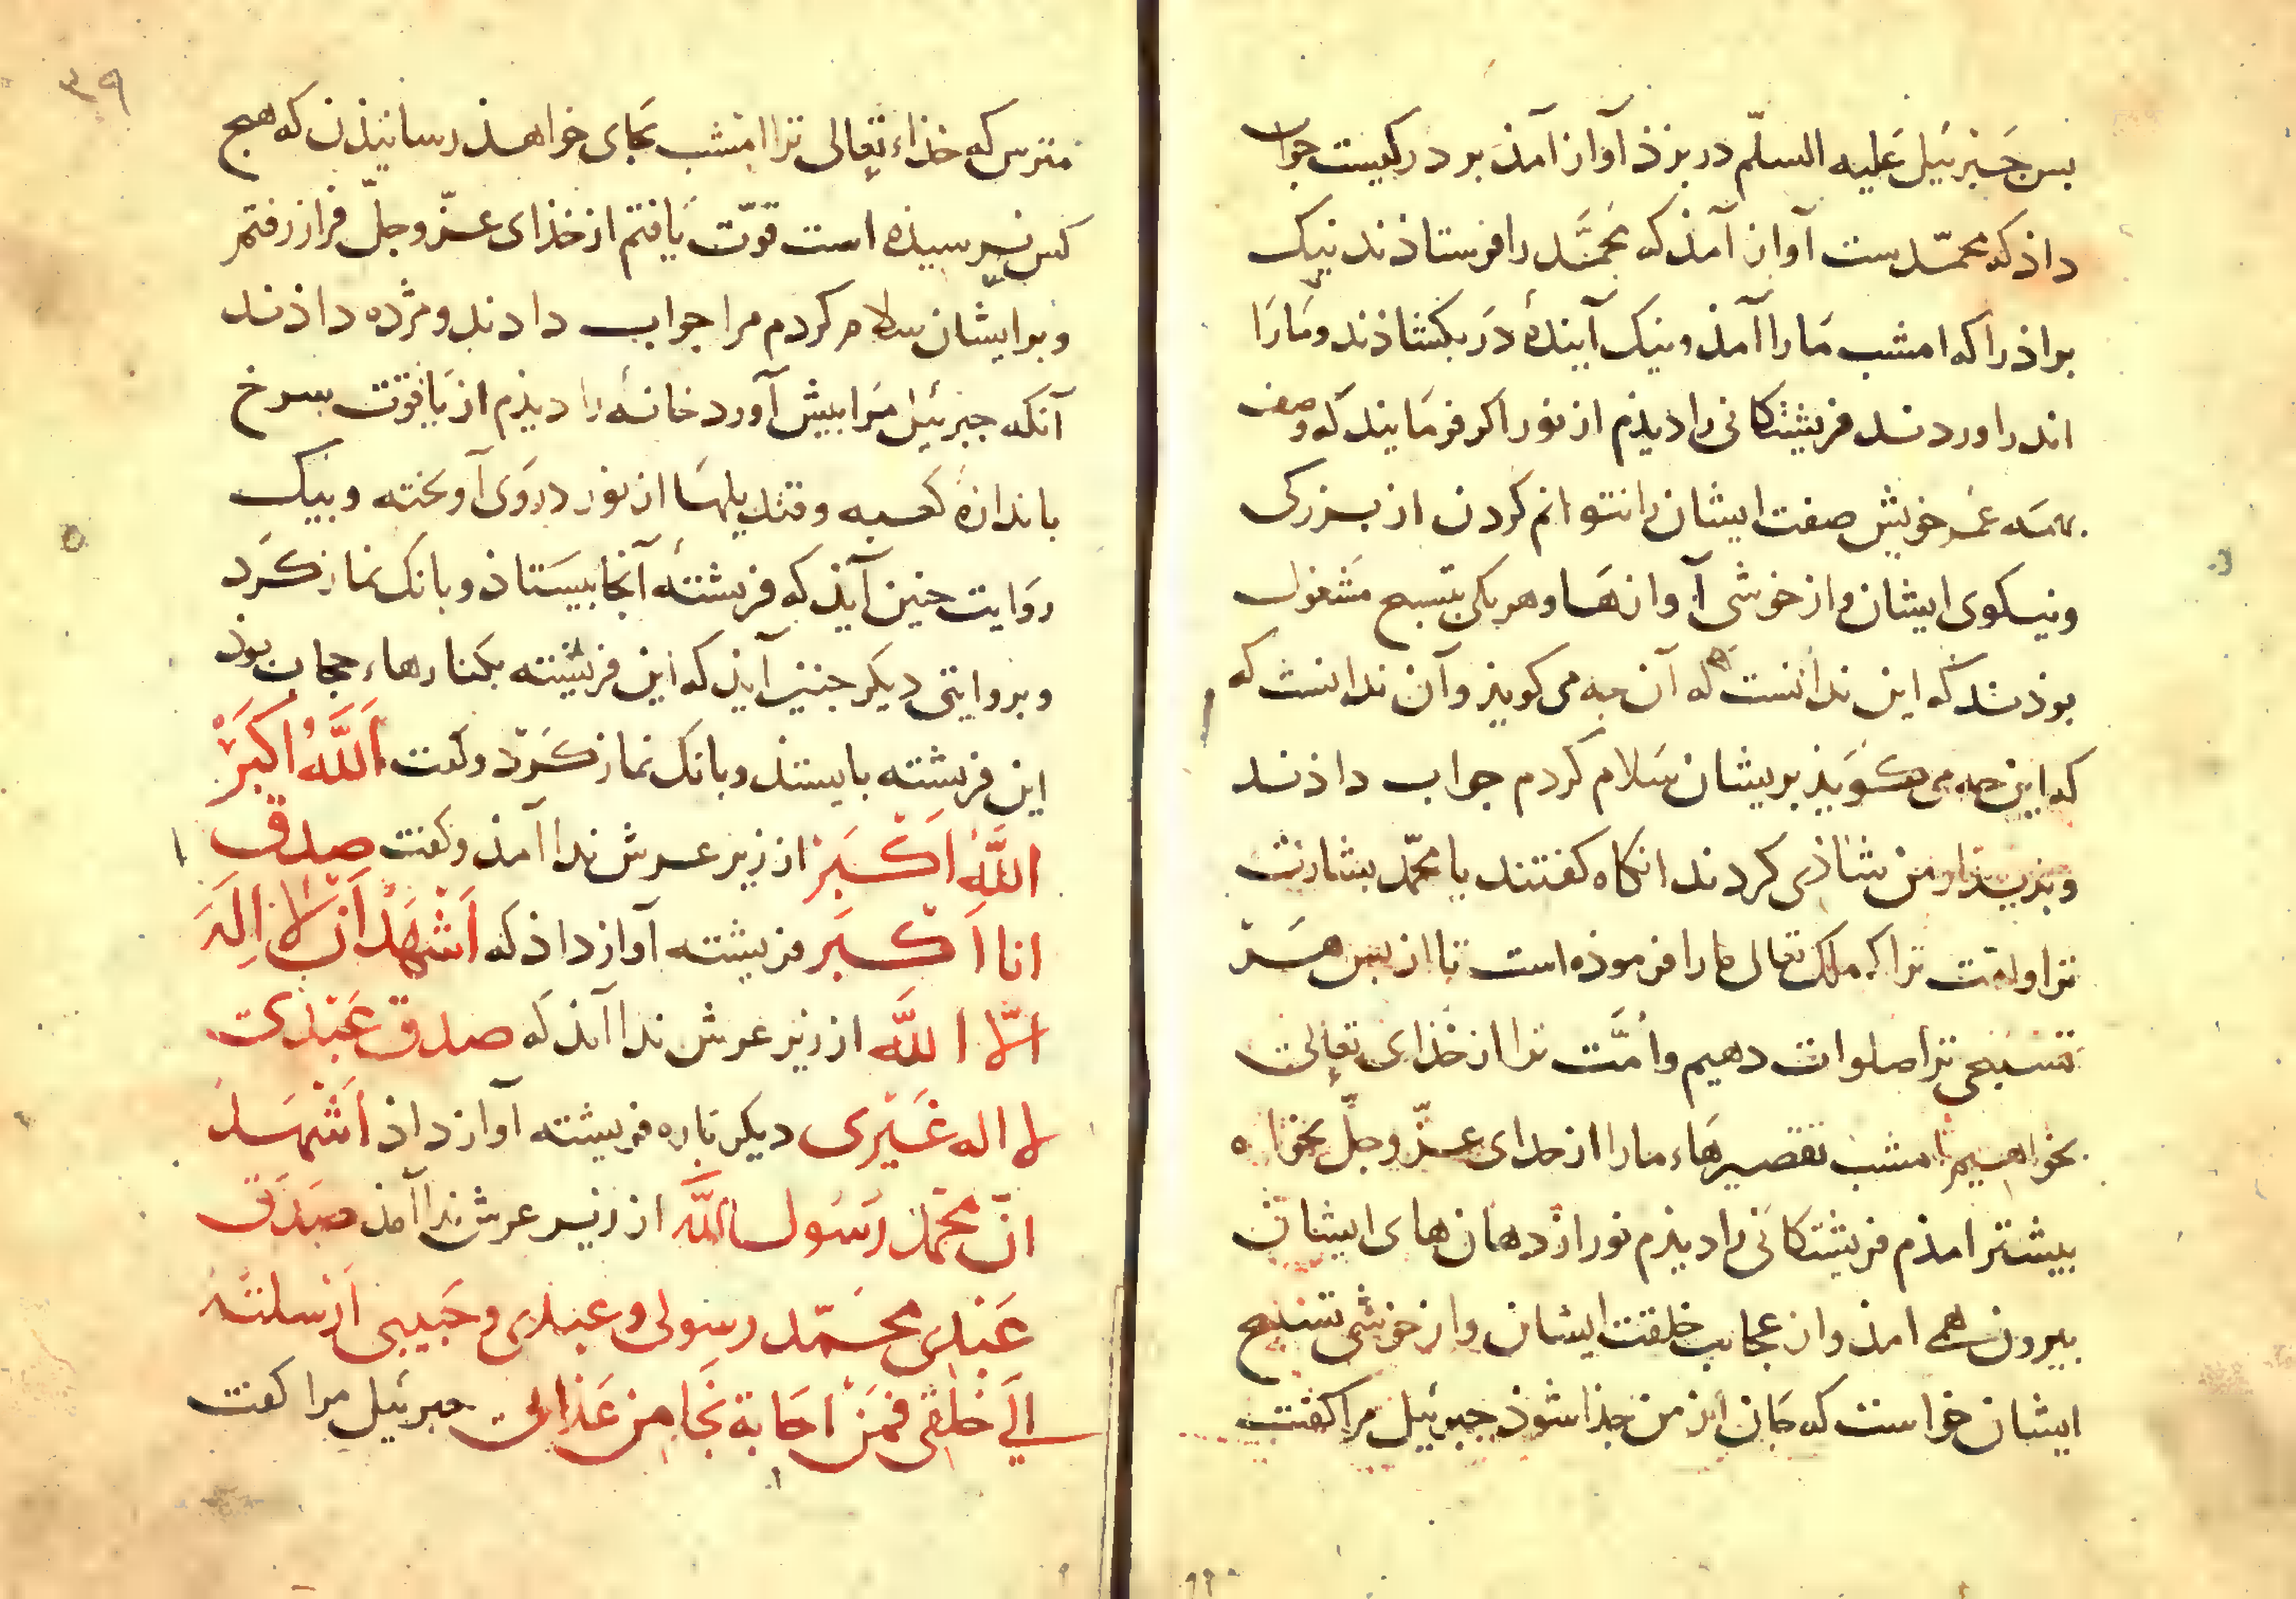 بس جبرئیل علیه السلّم در بزذ آواز آمذ بر در کیست جواب
داذ که محمّدست آواز آمذ که محمَّد را فرستاذند نیک
براذرا که امشب مَارا آمذ و نیک آیندهٔ دَر بکشاذند و مَارَا
اندر اوردند فریشتکانی را دیذم از نور اکر فرمَایند که وصف
بهمَه عمر خویش صفت ایشان را نتوانم کردن از بزرکی
و نیکوی ایشان و از خوشی آوازهَا و هر یکی بتسبیح مشغول
بوذند که این ندانست که آن چه می کویذ و آن ندانست که
که این چه می کوَیذ بریشان سَلام کردم جواب داذند
و بدیذار من شاذی کردند انکاه کفتند یا محمّد بشارت
ترا و امّت ترا که ملک تعالی ما را فرموذه است تا از بس هر
تسبیحی ترا صلوات دهیم و اُمَّت ترا از خذای تعالی
بخواهیم امشب تقصیرهَاء مارا از خدای عزّ و جلّ بخواه
بیشتر امذم فریشتکانی را دیذم نور از دهان های ایشان
بیرون همی امذ و از عجایب خلقت ایشان و از خوشی تسبیح
ایشان خواست که جان از من جذا شوذ جبرئیل مرا کفت
۳۹
مترس که خذاء تعالی ترا امشب بجای خواهذ رسانیذن که هیج
کس نرسیذه است قوّت یَافتم از خذای عزّ و جلّ فراز رفتم
و بر ایشان سلام کردم مرا جواب دادند و مژده داذند
آنکه جبرئیل مَرا بیش آورد خانهٔ را دیذم از یَاقوت سرخ
باندازهٔ کعبه و قندیلهَا از نور در وَی آویخته و بیک
روَایت جنین آیذ که فریشتهٔ آنجا بیستاذ و بانک نماز کرد
و بروایتی دیکر جنین آیذ که این فریشته بکنارهاء حجاب بوذ
این فریشته بایستذ و بانک نماز کَرَد و کفت اَللَّهُ اَکبَرْ
اللَّهُ اَکْبَر از زیر عرش ندا آمذ و کفت صدق
انا اَکْبَر فریشته آواز داذ که اَشْهَدُ اَن لا اِلَهَ
الّا اللَّه از زیر عرش ندا آمذ که صدق عَبْدی
لا اله غَیْری دیکر باره فریشته آواز داذ اَشْهَدُ
انّ محمّد رَسُول اللَّه از زیر عرش ندا آمذ صَدَق
عَبْدی محمّد رسولی و عبدی و حَبیبی اَرْسلتُهُ
اِلَی خَلقی فمَنْ اجَابهَ نجَا مِن عَذابی جبرئیل مرا کفت